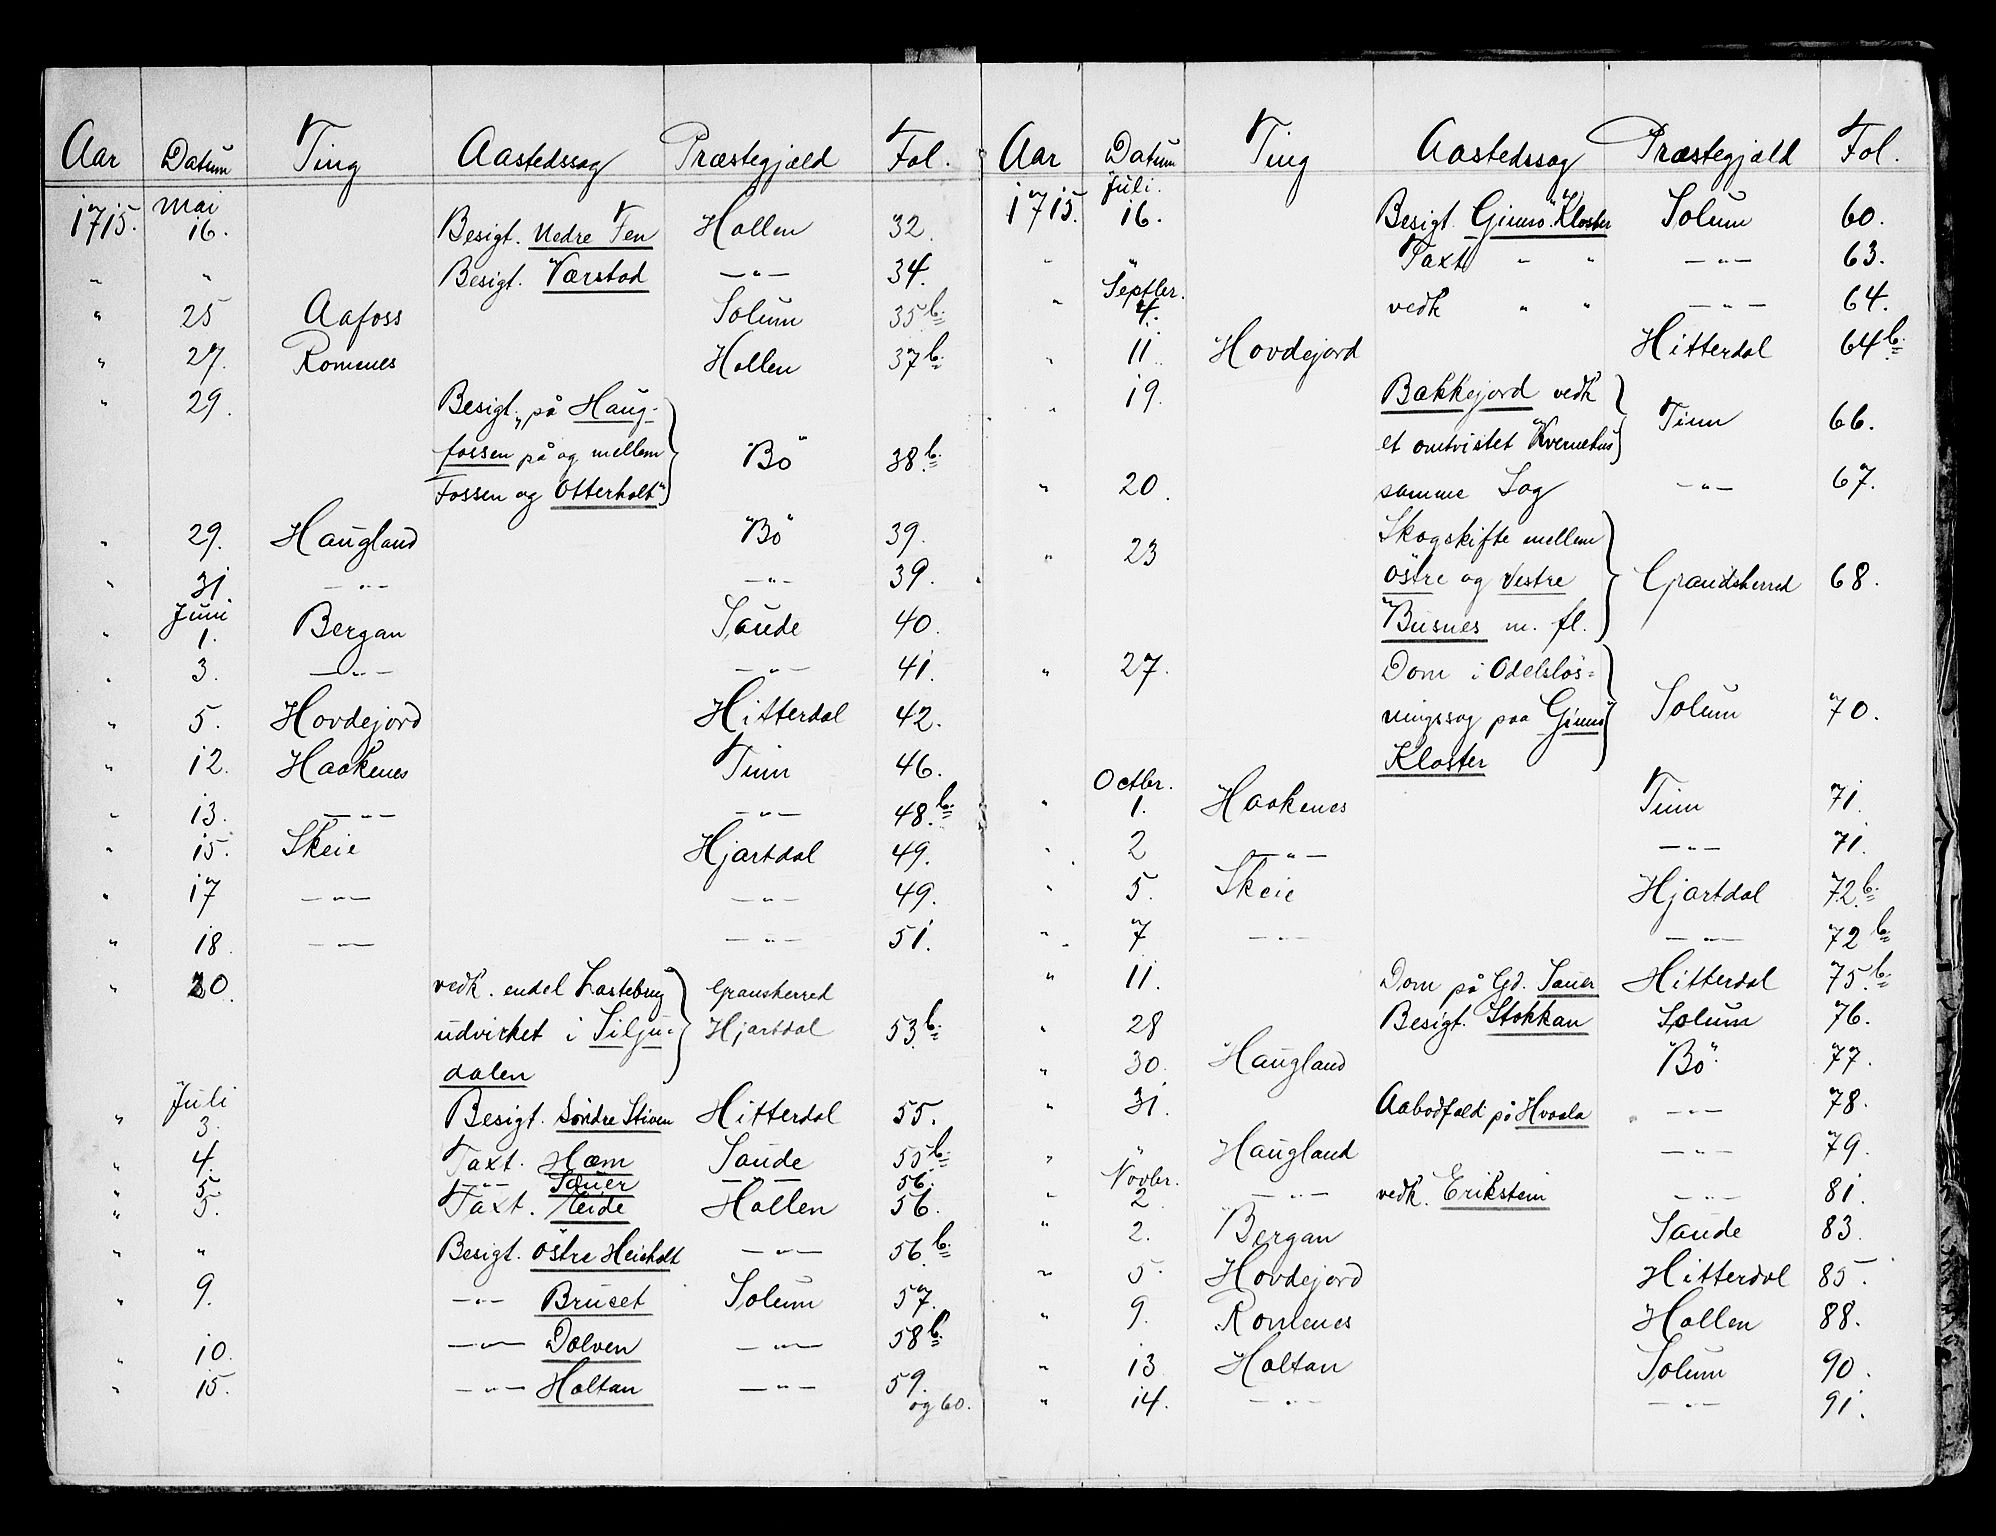 Aar Datum Ting Aastedssag Præstegjæld Fol.
1715. Mai 16. Besigt. Nedre Fen Hollen 32.
" " Besigt. Værstad —"— 34.
" 25 Aafoss Solum 35b.
" 27. Romenes Hollen 37b.
" 29. Besigt. på Haug-
fossen på og mellem Bö 38b.
Fossen og Otterholt
" 29. Haugland Bö 39.
" 31. —"— —"— 39.
" Juni 1. Bergan Saude 40.
" 3. —"— —"— 41.
" 5. Hovdejord Hitterdal 42.
" 12. Haakenes Tinn 46.
" 13. —"— —"— 48b.
" 15. Skeie Hjartdal 49.
" 17 —"— —"— 49.
" 18. —"— —"— 51.
" 20. vedk. endel Lastebrug Gransherred
udvirket i Silju- Hjartdal 53b.
dalen
" Juli 3. Besigt. Søndre Stiven Hitterdal 55.
" 4. Taxt. Hæm Saude 55b.
" 5. —"— Sauer —"— 56.
" 5. Taxt. Heide Hollen 56.
" " Besigt. östre Heisholt —"— 56b.
" 9. —"— Bruset Solum 57.
" 10. —"— Dolven —"— 58b.
" 15. —"— Holtan —"— 59.
og 60.
Aar Datum Ting Aastedssag Præstegjæld Fol.
1715. Juli. 16. Besigt. Gimsö Kloster Solum 60.
" " Taxt " " —"— 63.
" Septbr. 4. vedk " " —"— 64.
" 11 Hovdejord Hitterdal 64b.
" 19. Bakkejord vedk
et omtvistet Kvernehus Tinn 66.
" 20. samme Sag —"— 67.
" 23 Skogskifte mellem
östre og Vestre Grandsherred 68.
Busnes m. fl.
" 27. Dom i Odelslös-
ningssag paa Gimsö Solum 70.
Kloster
" Octbr. 1. Haakenes Tinn 71.
" 2 —"— —"— 71.
" 5. Skeie Hjartdal 72b.
" 7 —"— —"— 72b.
" 11. Dom på Gd. Sauer Hitterdal 75b.
" 28 Besigt. Stokkan Solum 76.
" 30. Haugland Bö 77.
" 31. Aabodfald på Hvaala —"— 78.
" " Haugland —"— 79.
" Novbr. 2 —"— vedk. Erikstein —"— 81.
" 2. Bergan Saude 83.
" 5. Hovdejord Hitterdal 85.
" 9. Romenes Hollen 88.
" 13 Holtan Solum 90.
" 14. —"— —"— 91.